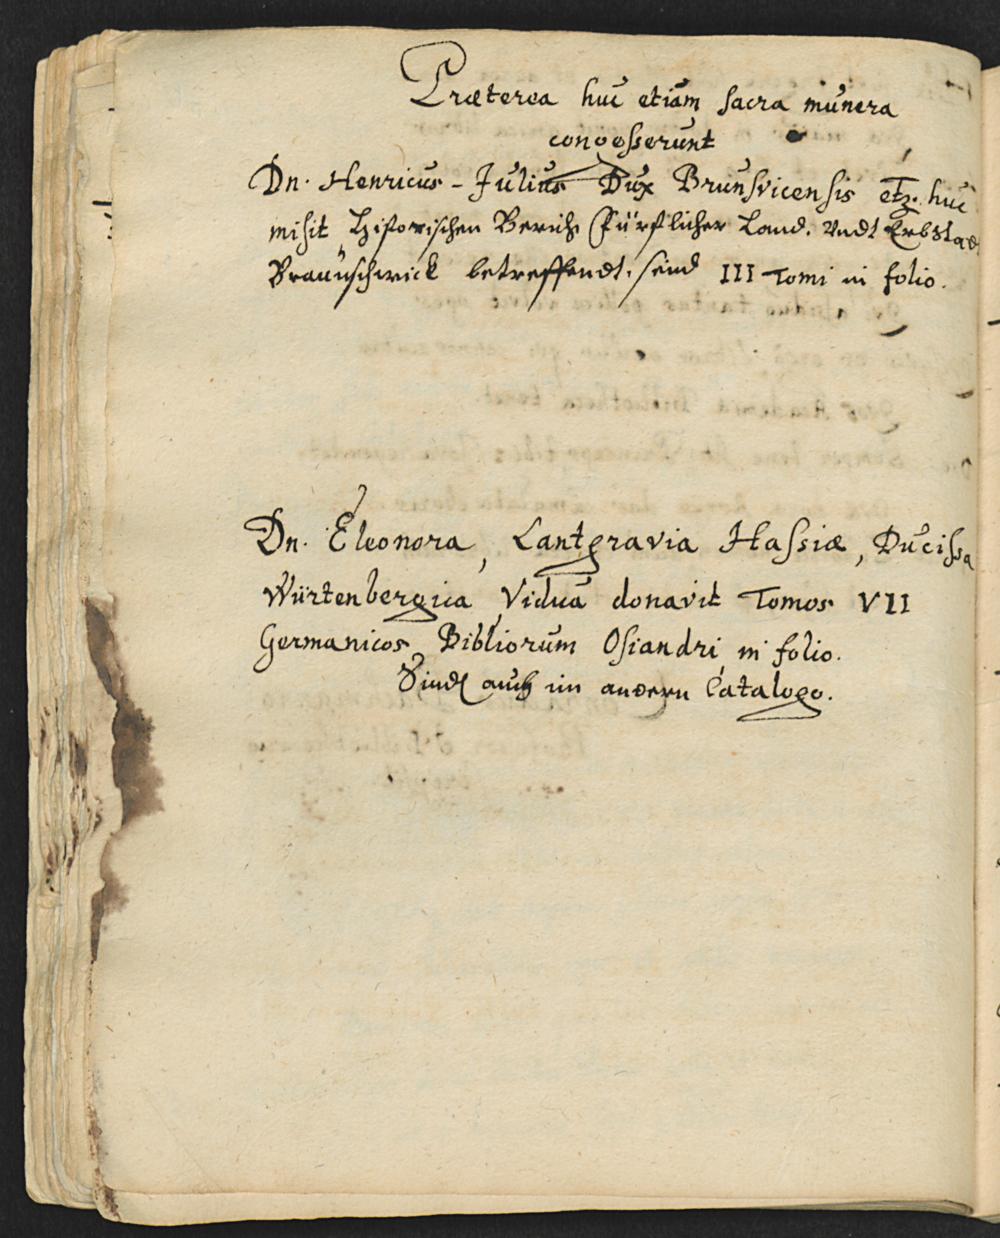 Præterea huc etiam sacra munera
congesserunt
Dn. Henricus-Julius Dux Brunsvicensis etz. huc
misit Historischen Bericht Fürstlicher Land. vndt Erbstad
Braunschwick betreffendt, seind III Tomi in folio.
Dn. Eleonora, Lantgravia Hassiæ, Ducissa
Würtenbergica, Vidua donavit Tomos VII
Germanicos Bibliorum Osiandri in folio.
Sindt auch im andern Catalogo.